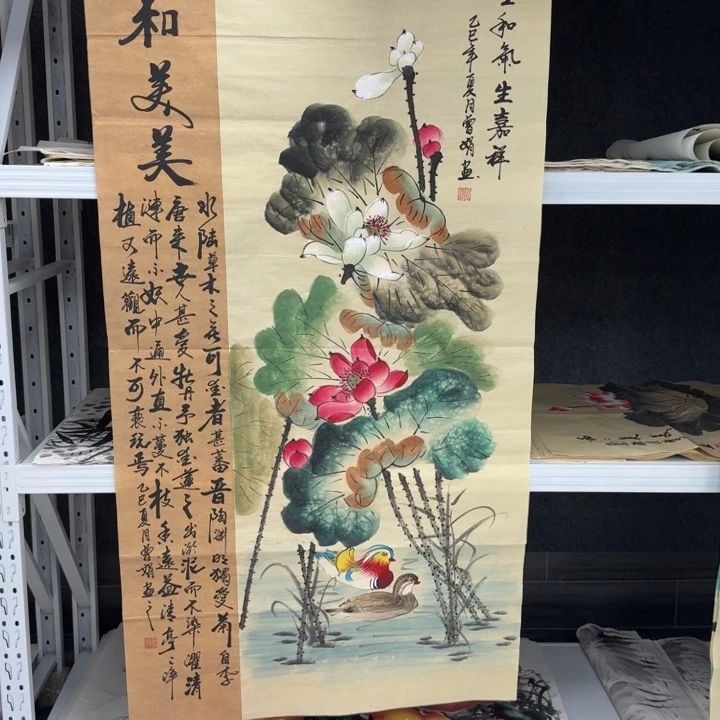 和氣生嘉祥
乙巳年夏月曾娟画
和美美
水陆草木之花可爱者甚蕃晋陶渊明獨爱菊自李
唐来世人甚爱牡丹予独爱蓮之出淤泥而不染濯清
涟而不妖中通外直不蔓不枝香遠益清亭々净
植可遠觀而不可亵玩焉乙巳夏月曾娟画之